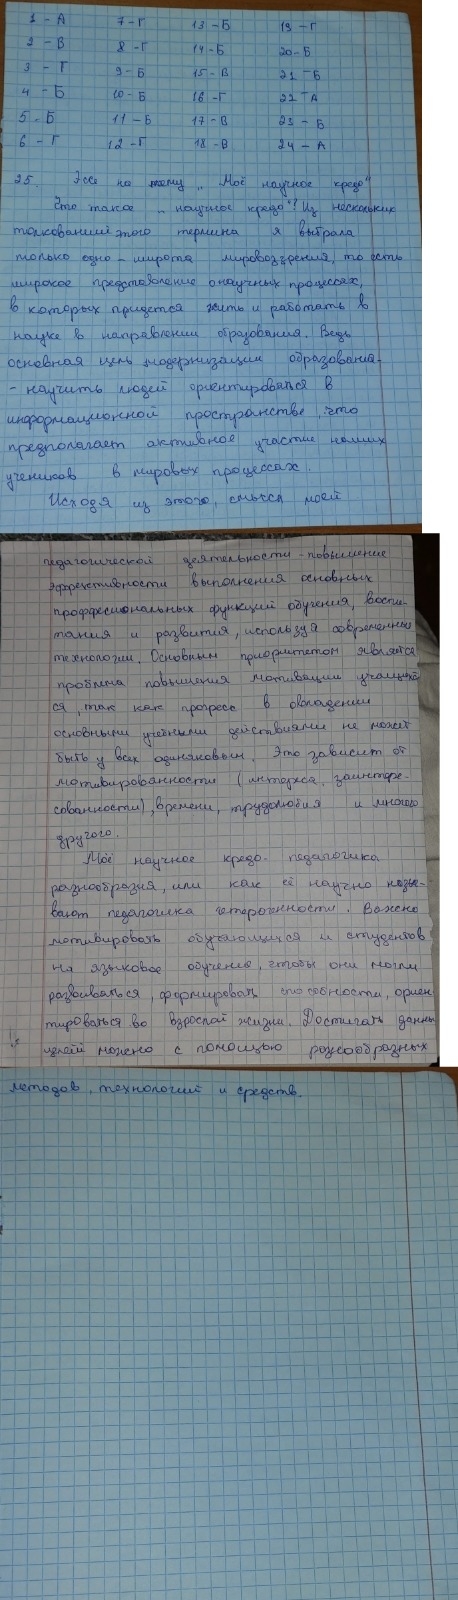 1 - А 7 - Г 13 - Б 19 - Г
2 - В 8 - Г 14 - Б 20 - Б
3 - Г 9 - Б 15 - В 21 - Б
4 - Б 10 - Б 16 - Г 22 - А
5 - Б 11 - Б 17 - В 23 - Б
6 - Г 12 - Г 18 - В 24 - А
25. Эссе на тему „Моё научное кредо"
Что такое „научное кредо"? Из нескольких
толкований этого термина я выбрала
только одно - широта мировоззрения, то есть
широкое представление о научных процессах,
в которых придется жить и работать в
науке в направлении образования. Ведь
основная цель модернизации образования-
- научить людей ориентироваться в
информационной пространстве, что
предполагает активное участие наших
учеников в мировых процессах.
Исходя из этого, смысл моей
педагогической деятельности - повышение
эффективности выполнения основных
проффесиональных функций обучения, воспи-
тания и развития, используя современные
технологии. Основным приоритетом является
проблема повышения мотивации учащихс
ся, так как прогресс в овладении
основными учебными действиями не может
быть у всех одинаковым. Это зависит от
мотивированности (интереса, заинтере-
сованности), времени, трудолюбия и много
другого.
Моё научное кредо - педагогика
разнообразия, или как её научно назы-
вают педагогика гетерогенности. Важно
мотивировать обучающихся и студентов
на языковое обучение, чтобы они могли
развиваться, формировать способности, ориен
тироваться во взрослой жизни. Достигать данны
целей можно с помощью разнообразных
методов, технологий и средств.